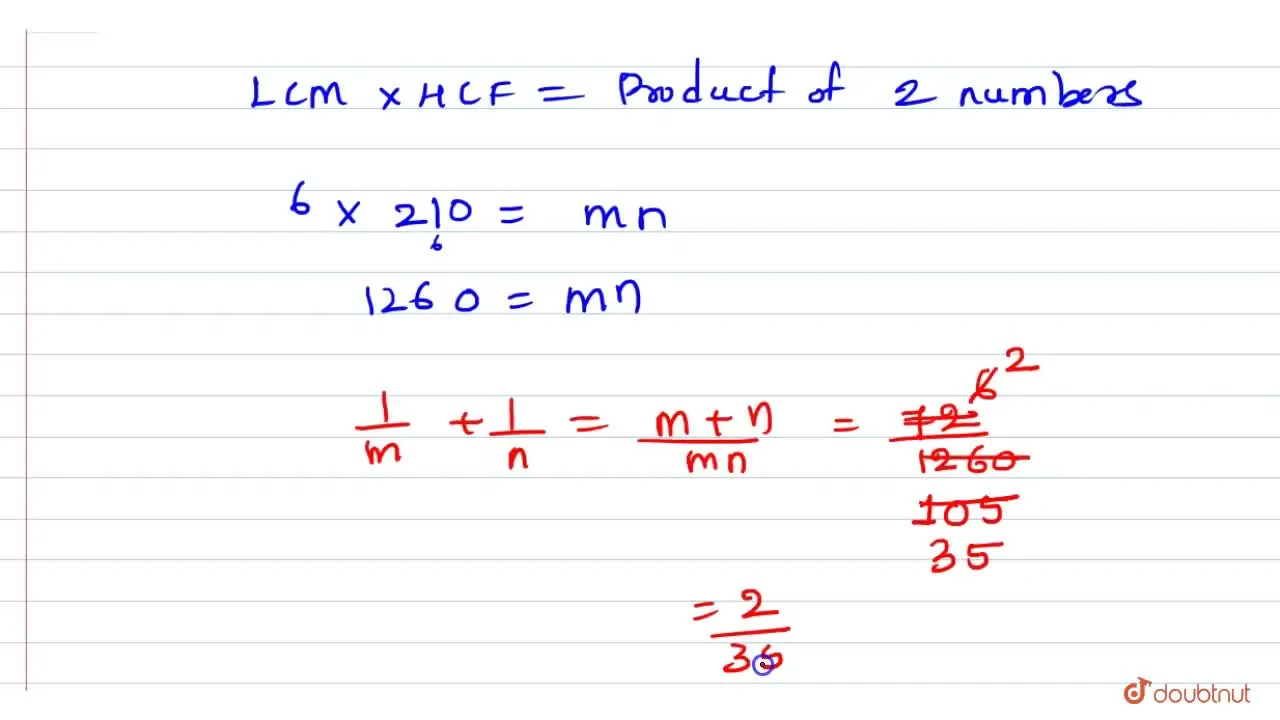 LCM x HCF = Product of 2 numbers
6 x 210 = mn
6
1260 = mn
1/m + 1/n = m + n/mn = 72/1260 6 2
105
35
= 2/35
doubtnut